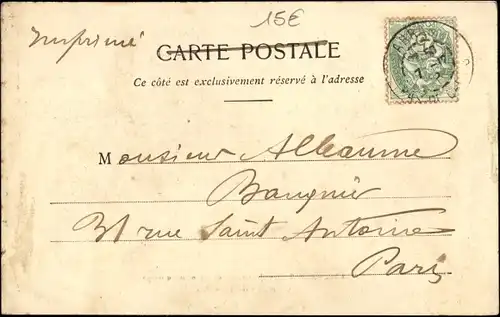 15€
Imprimé
CARTE POSTALE
Ce côté est exclusivement réservé à l'adresse
Monsieur Alleaume
Banquier
31 rue Saint Antoine
Paris